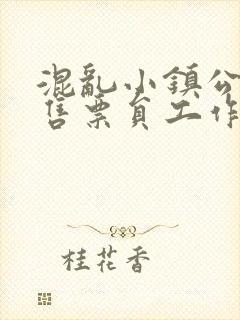 混亂小鎮公
售票員工作
桂花香